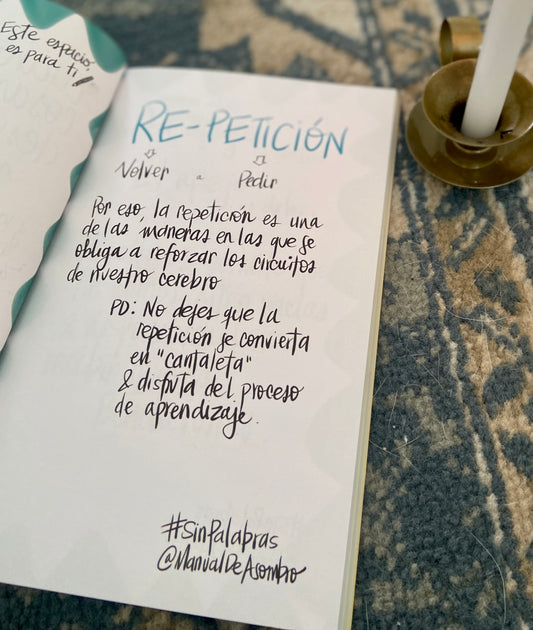 Este espacio,
es para ti
RE-PETICIÓN
Volver a Pedir
Por eso, la repetición es una
de las maneras en las que se
obliga a reforzar los circuitos
de nuestro cerebro
PD: No dejes que la
repetición se convierta
en "cantaleta"
& disfruta del proceso
de aprendizaje.
#SinPalabras
@ManualDeAsombro